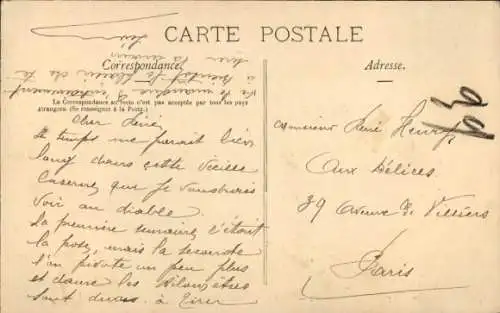 CARTE POSTALE
Correspondance.
Adresse.
La Correspondance au recto n'est pas acceptée par tous les pays
étrangers (Se renseigner à la Poste.)
Cher René
le temps me parait bien
long dans cette vieille
Caserne que je voudrais
voir au diable.
la première semaine c'était
la pose, mais la seconde
l'on pivote un peu plus
et dame les kilomètres
sont durs à tirer
vie le m'ennuie
à bientôt le plaisir de te
lire
Monsieur René Henry
Aux Délices
39 Avenue de Villiers
Paris